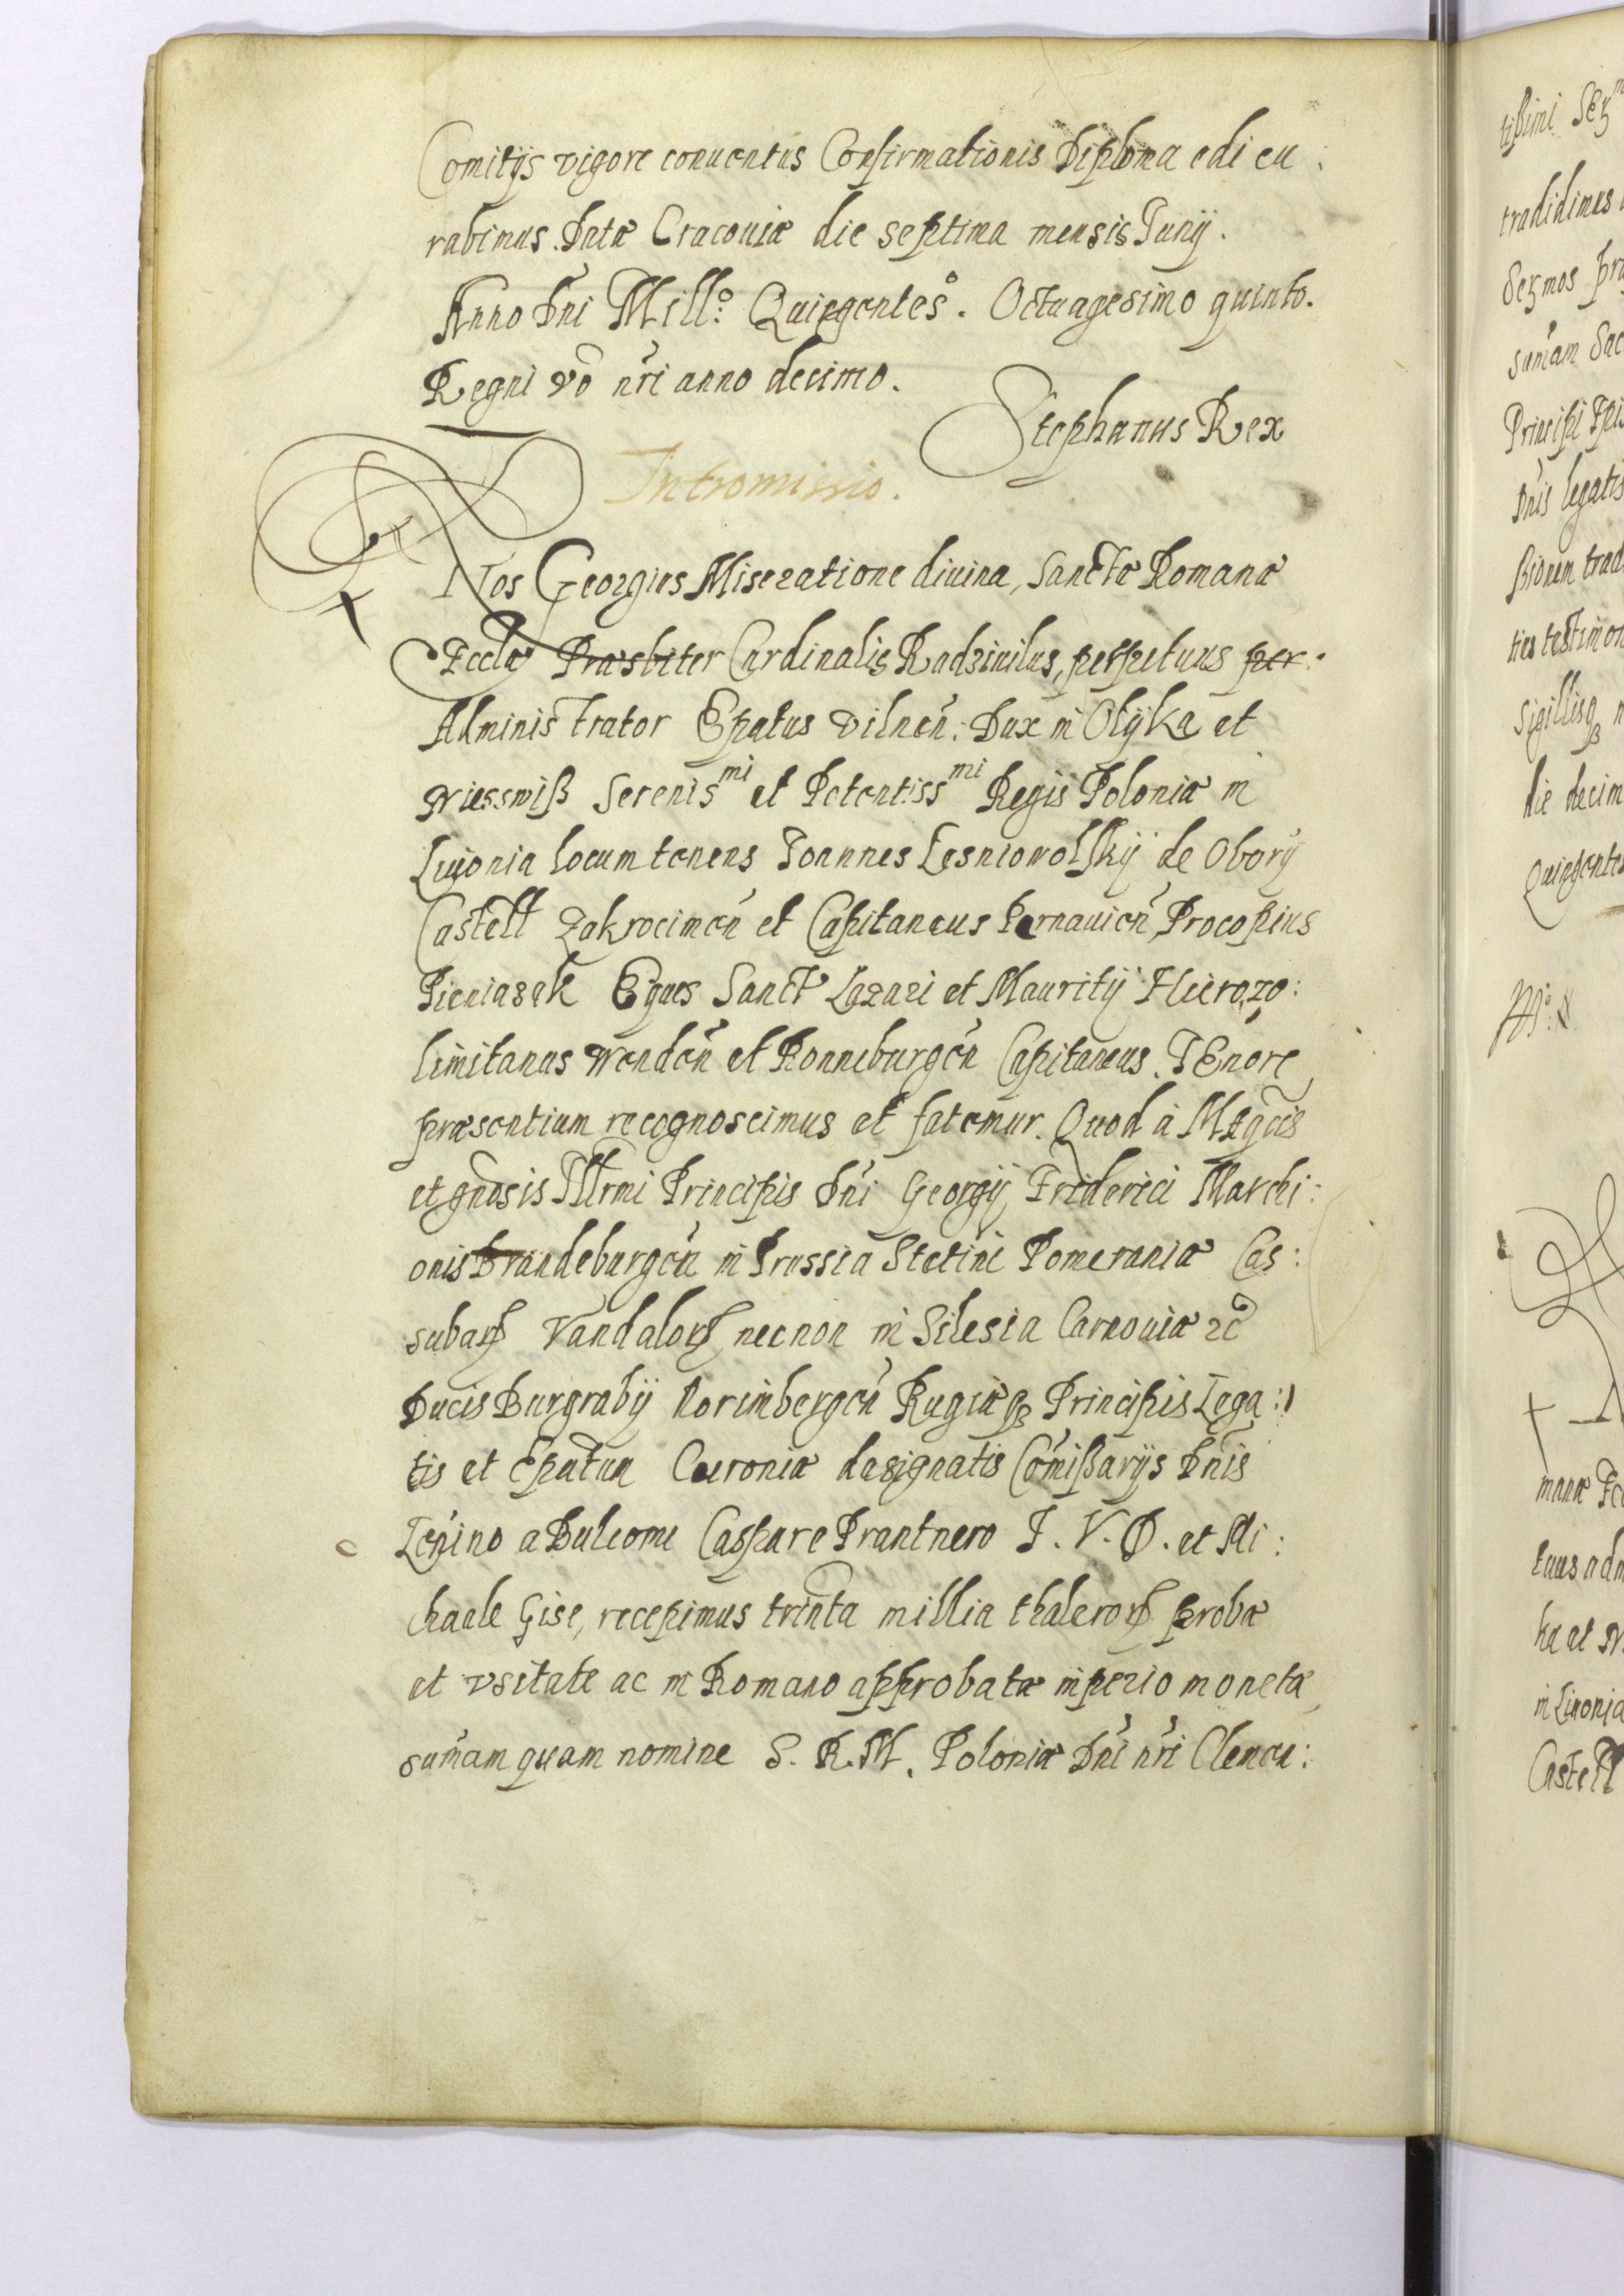 Comitijs vigore conuentus Confirmationis Diploma edi cu:
rabimus. Datæ Cracouiæ die septima mensis Junij.
Anno Dñi Mill:º Quingentes.º Octuagesimo quinto.
Regni vō nr̃i anno decimo.
Stephanus Rex
Intromissio.
Nos Georgius Miseratione diuina, Sanctæ Romanæ
Eccłæ Præsbiter Cardinalis Radziuilus, perpetuus per:
Administrator Epatus Vilneñ: Dux in Olÿka et
Niesswiß Serenisᵐⁱ et Potentissᵐⁱ Regis Poloniæ in
Liuonia locumtenens Joannes Lesniowolskÿ de Oborÿ
Castell Zakrocimeñ et Capitaneus Pernauieñ, Procopius
Pieniazek Eques Sanctꝝ Lazari et Mauritij Hierozo:
limitanus Wendeñ et Ronneburgeñ Capitaneus. TEnore
præsentium recognoscimus et fatemur. Quod à Mag̃cis
et gñosis Illr̃mi Principis Dñi Georgij Friderici Marchi:
onis Brandeburgeñ in Prussia Stetini Pomeraniæ Cas:
subaꝝ Vandaloꝝ necnon in Silesia Carnouiæ ꝛc̃
Ducis Burgrabij Norimbergeñ Rugiæqꝫ Principis Lega:
tis et Epatum Curoniæ designatis Com̃ißarijs Dñis
Leuino a Bulcome Caspare Prantnero J. V. D. et Mi:
chaele Gise, recepimus trinta millia thaleroꝝ probæ
et vsitate ac in Romano approbatæ inperio monetæ
sum̃am quam nomine S. R. M. Poloniæ Dñi nr̃i Cleme: